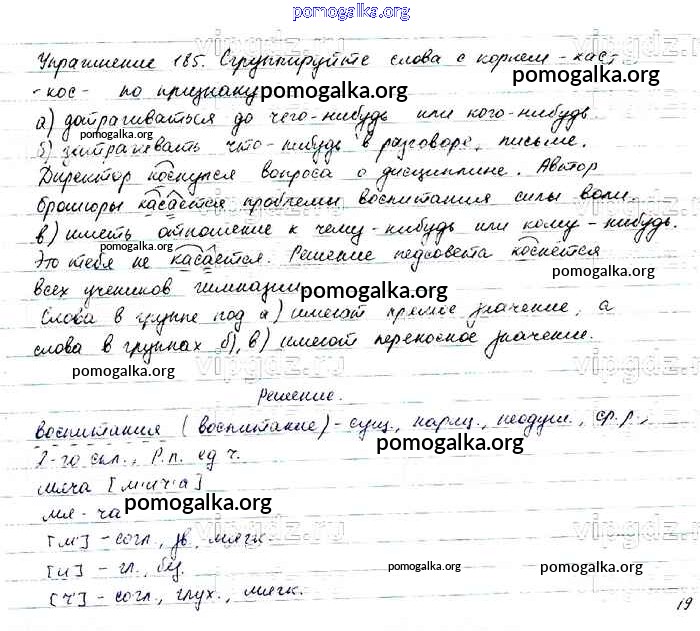 pomogalka.org
Упражнение 185. Сгруппируйте слова с корнем -кас-,
-кос- по признаку pomogalka.org pomogalka.org
а) дотрагиваться до чего-нибудь или кого-нибудь.
pomogalka.org
б) затрагивать что-нибудь в разговоре, письме.
Директор коснулся вопроса о дисциплине. Автор
pomogalka.org
брошюры касается проблемы воспитания силы воли.
в) иметь отношение к чему-нибудь или кому-нибудь.
pomogalka.org
Это тебя не касается. Решение педсовета коснётся
pomogalka.org
всех учеников гимназии pomogalka.org
Слова в группе под а) имеют прямое значение, а
слова в группах б), в) имеют переносное значение.
pomogalka.org vipgdz.ru
Решение.
воспитания (воспитание) - сущ., нариц., неодуш., ср.р.,
pomogalka.org
2-го скл., Р.п. ед.ч.
мяча
pomogalka.org
мя-ча
vipgdz.ru
[м'] - согл., зв., мягк.
[и] - гл., бу.
pomogalka.org pomogalka.org
[ч'] - согл., глух., мягк.
19